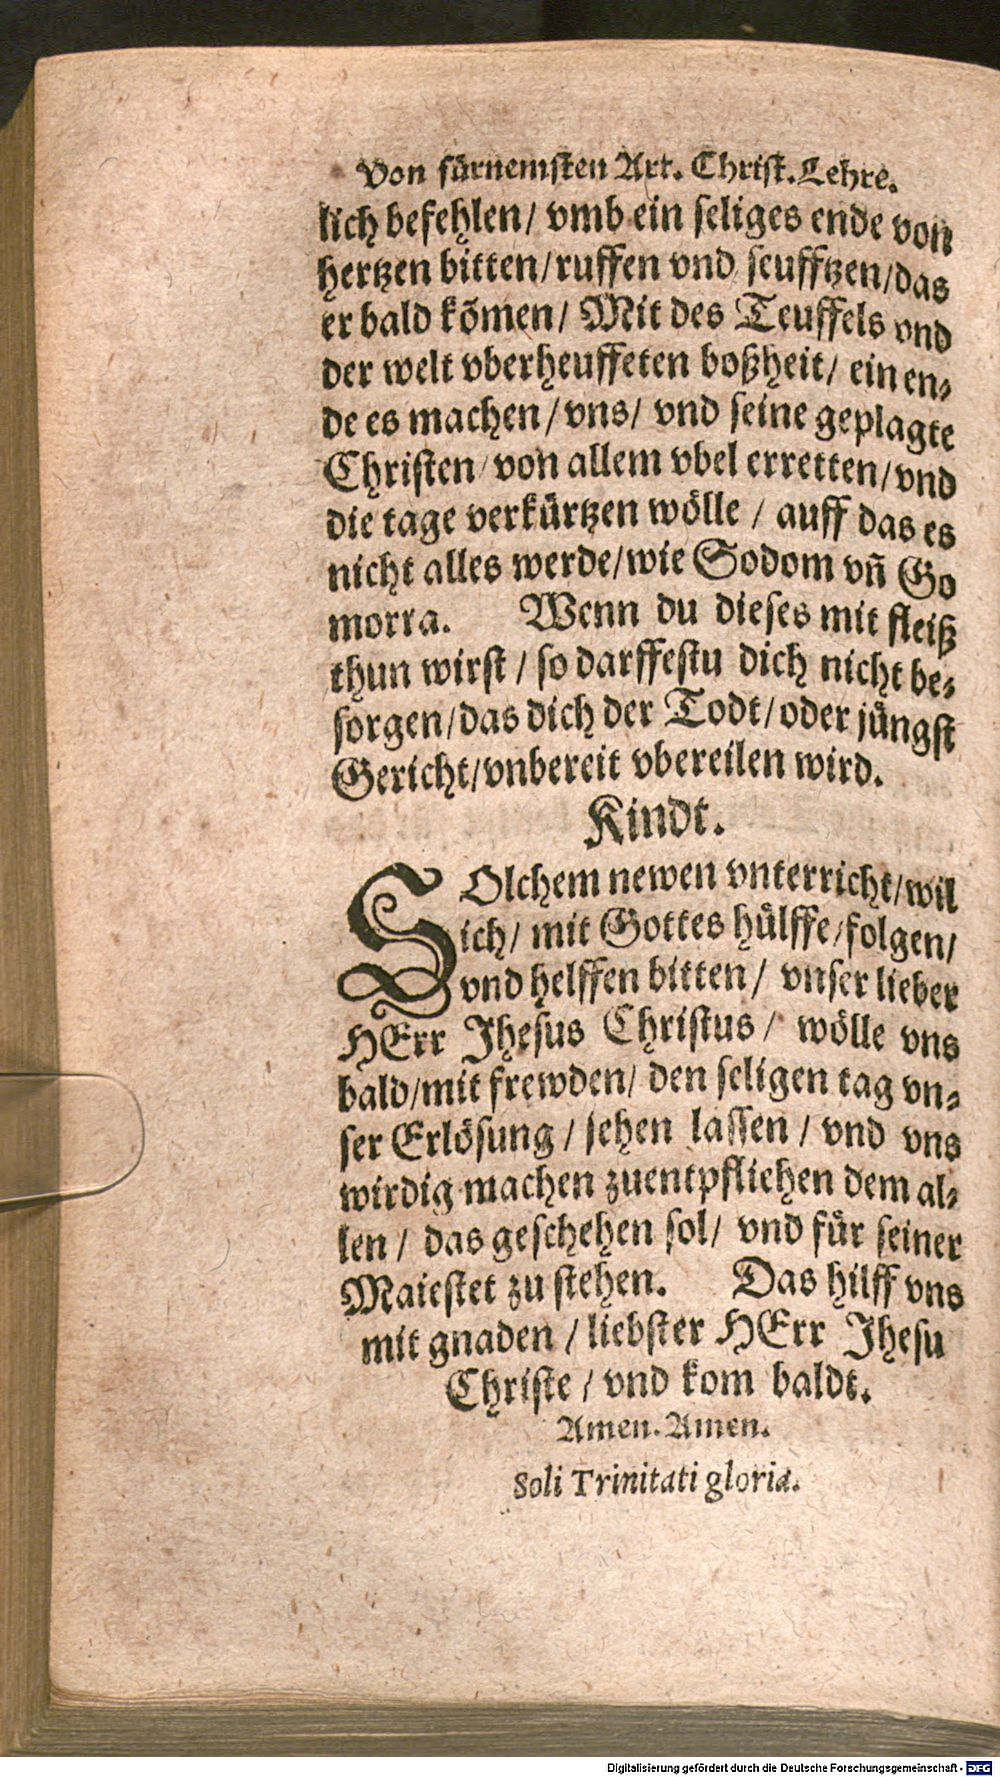 Von fürnemsten Art. Christ. Lehre.
lich befehlen/ vmb ein seliges ende von
hertzen bitten/ruffen vnd seufftzen/das
er bald kõmen/ Mit des Teuffels vnd
der welt vberheuffeten boßheit/ ein en⸗
de es machen/vns/ vnd seine geplagte
Christen/von allem vbel erretten/vnd
die tage verkürtzen wölle / auff das es
nicht alles werde/wie Sodom vñ Go
morra. Wenn du dieses mit fleiß
thun wirst / so darffestu dich nicht be⸗
sorgen/das dich der Todt/oder jüngst
Gericht/vnbereit vbereilen wird.
Kindt.
SOlchem newen vnterricht/wil
ich/ mit Gottes hülffe/folgen/
vnd helffen bitten/ vnser lieber
HErr Jhesus Christus/ wölle vns
bald/mit frewden/ den seligen tag vn⸗
ser Erlösung / sehen lassen / vnd vns
wirdig machen zuentpfliehen dem al⸗
len / das geschehen sol/ vnd für seiner
Maiestet zu stehen. Das hilff vns
mit gnaden / liebster HErr Jhesu
Christe / vnd kom baldt.
Amen. Amen.
Soli Trinitati gloria.
Digitalisierung gefördert durch die Deutsche Forschungsgemeinschaft - DFG